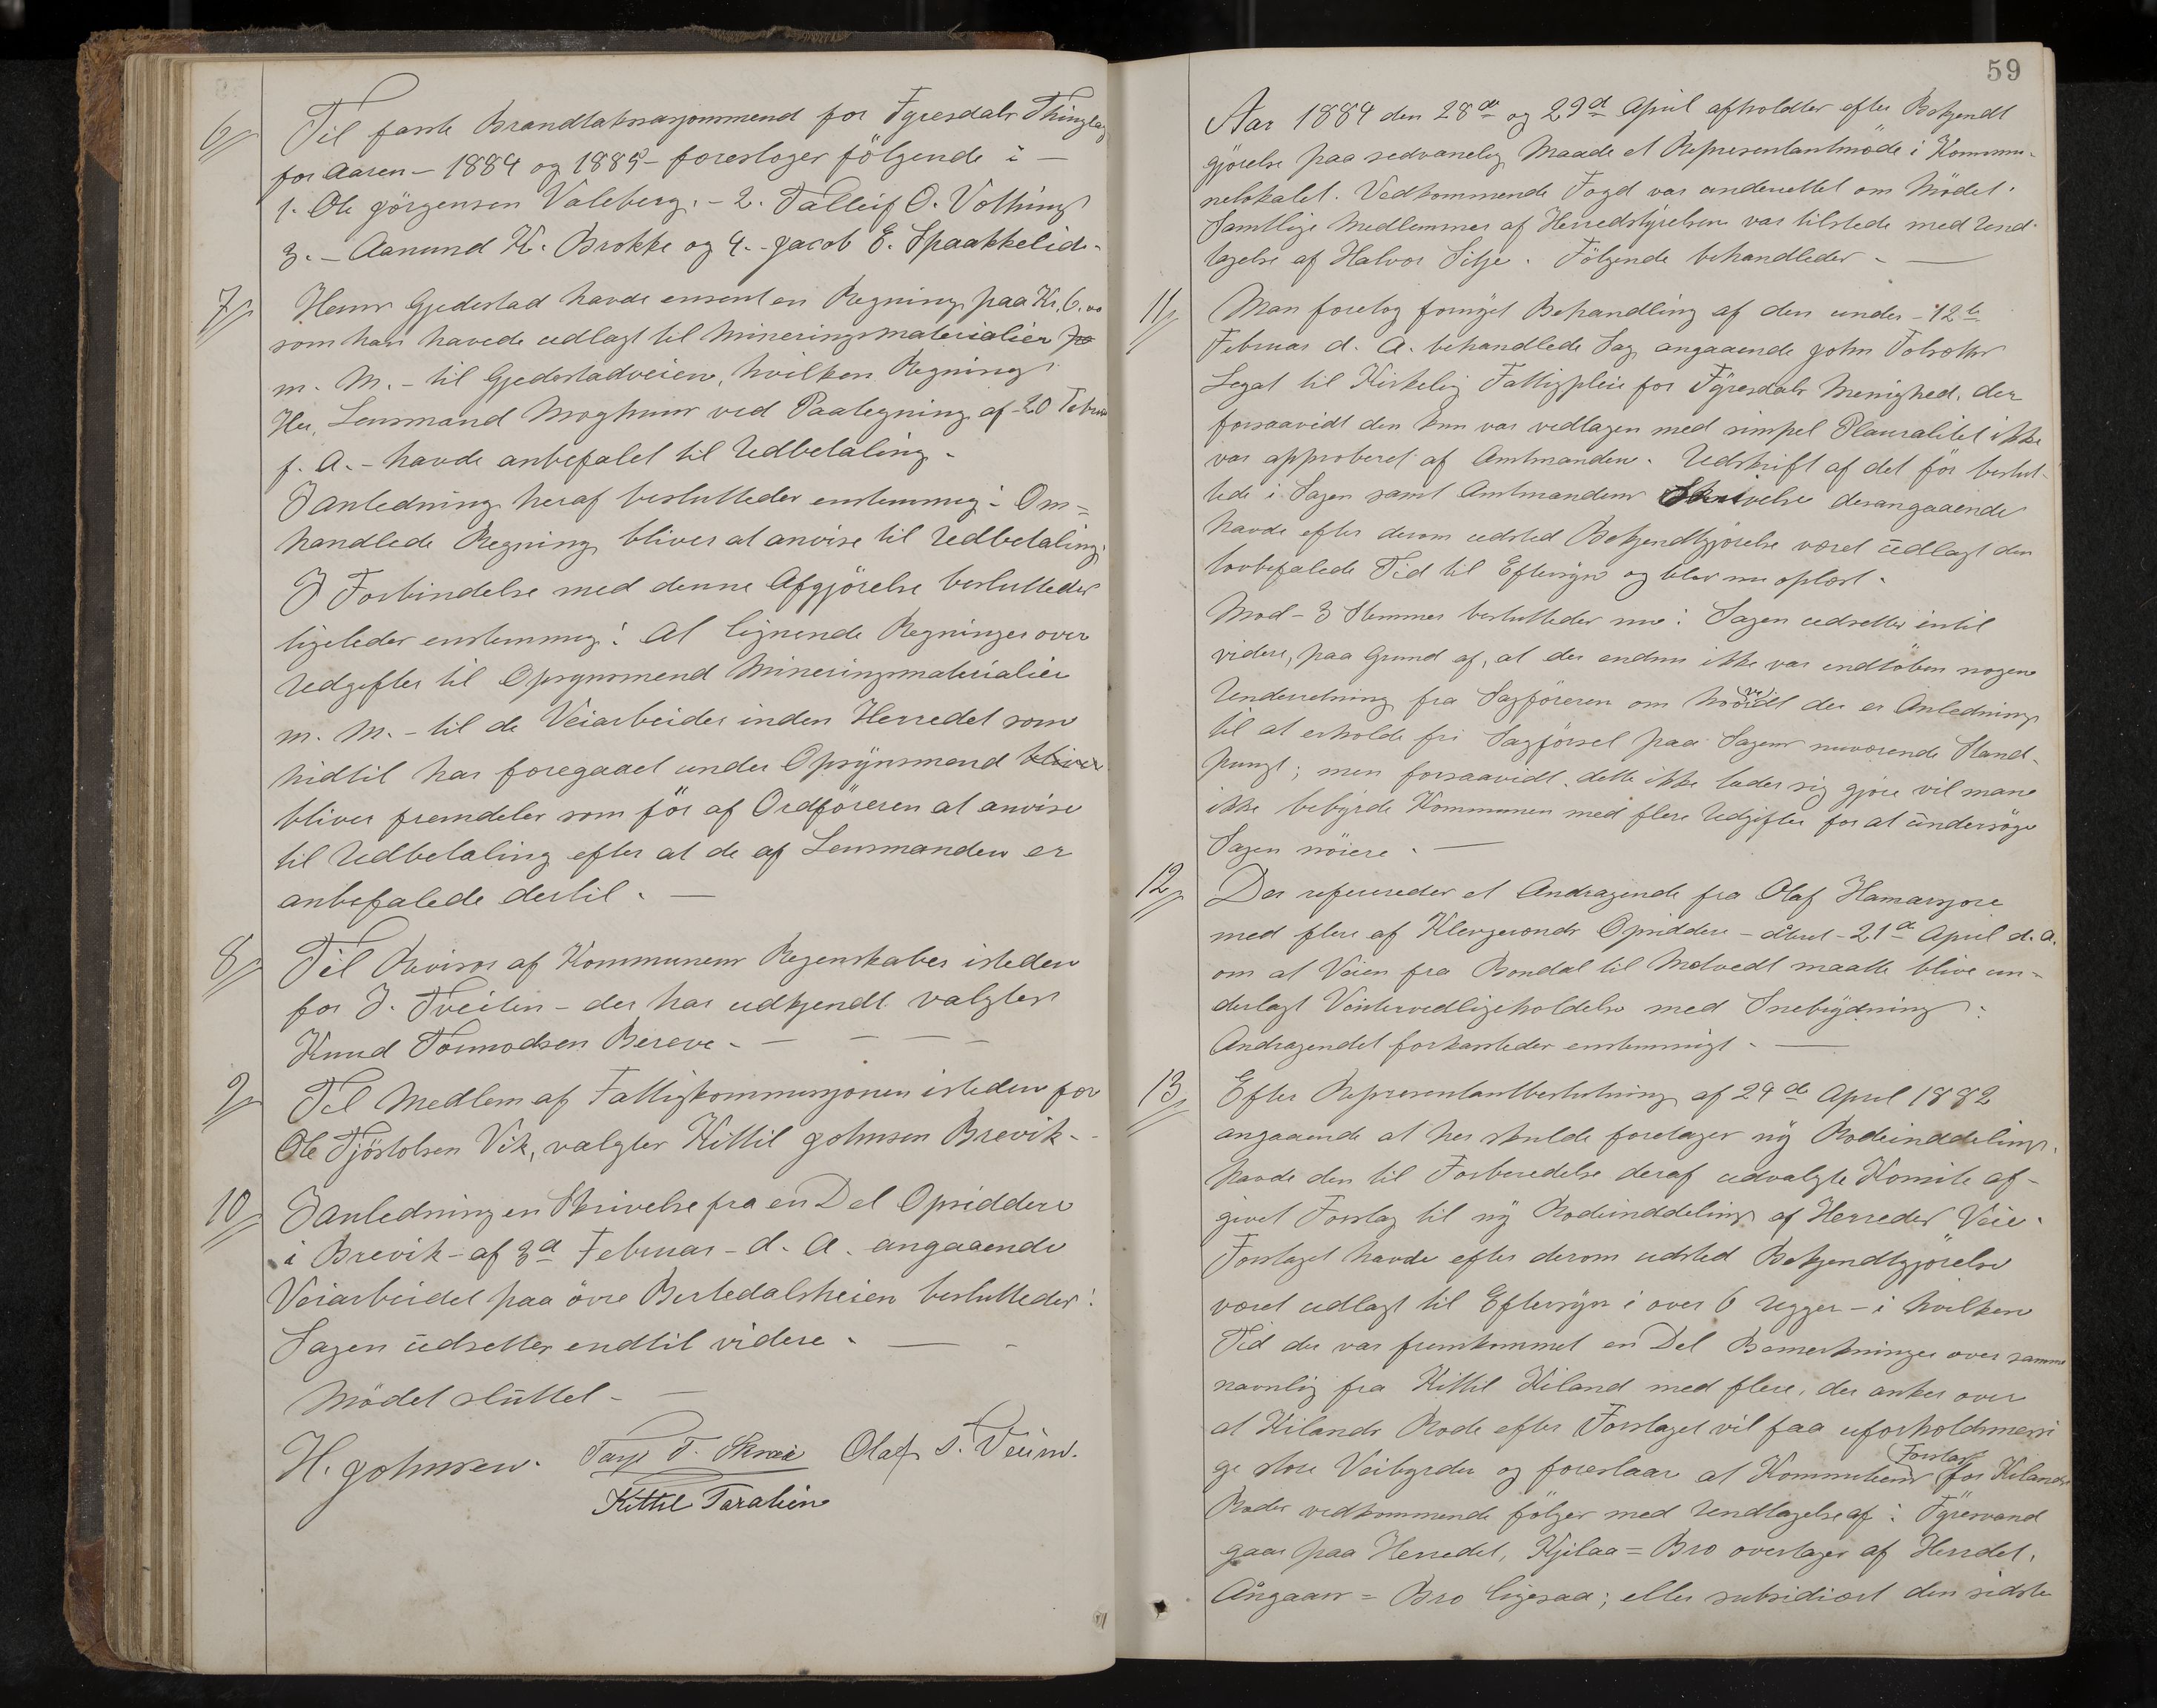 6//
Til faste Brandtaksasjonsmend for Fyresdals Thinglag
for Aaren – 1884 og 1885 – foresloges fölgende : –
1. Ole Jörgensen Valeberg. – 2. Talleif O.
3. – Aanund K. Brokke og 4. – Jacob E. Spaakkelid. –
7//
Hans Gjedestad havde ensent en Regning paa Kr. 6.00
som han havede udlagt til Mineringsmaterialier
m. M. – til Gjedestadveien, hvilken Regning
Hr. Lensmand Moghuus ved Paategning af – 20 Februar
f. A. – havde anbefalet til Udbetaling. –
I anledning heraf besluttedes enstemmig: Om=
handlede Regning bliver at anvise til Udbetaling.
I Forbindelse med denne Afgjörelse besluttedes
ligeledes enstemmig: At lignende Regninger over
Udgifter til Opsynsmend Mineringsmaterialier
m. M. – til de Veiarbeider inden Herredet som
hidtil har foregaaet under Opsynsmend bliver
bliver fremdeles som för af Ordföreren at anvise
til Udbetaling efter at de af Lensmanden er
anbefalede dertil. –
8//
Til Revisor af Kommunens Regenskaber isteden
for J. Tveiten – der har udkjendt valgtes
Knud Tormodsen Bereve. – – – –
9//
Til Medlem af Fattigkommisjonen isteden for
Ole Tjöstolsen Vik, valgtes Kittil Johnsen Brevik. –
10//
I anledning en Skrivelse fra en Del Opsiddere
i Brevik – af 3d Februar – d. A. angaaende
Veiarbeidet paa övre Bertedalsheien besluttedes:
Sagen udsettes endtil videre. – –
Mödet sluttet –
H. Johnsen. Tarje T. Olaf S. Veum.
Kittil Taraldlien
59
Aar 1884 den 28de og 29d April afholdtes efter Bekjendt
gjörelse paa sedvanelig Maade et Representantmöde i Kommu-
nelokalet. Vedkommende Fogd var underrettet om Mödet.
Samtlige Medlemmer af Herredstyrelsen var tilstede med Und-
tagelse af Halvor Sitje. Fölgende behandledes – –
11//
Man foretog fornyet Behandling af den under – 12te
Februar d. A. behandlede Sag angaaende John
Legat til Kirkelig Fattigpleie for Fyresdals Menighed, der
forsaavidt den kun var vedtagen med simpel Plauralitet ikke
var approberet af Amtmanden. Udskrift af det för beslut-
tede i Sagen samt Amtmandens Skrivelse desangaaende
havde efter derom udsted Bekjendtgjörelse været udlagt den
lovbefalede Tid til Eftersyn og blev nu oplæst.
Mod – 3 Stemmer besluttedes nu: Sagen udsettes intil
videre, paa Grund af, at der endnu ikke var endlöben nogen
Underretning fra Sagföreren om hvorvidt der er Anledning
til at erholde fri Sagförsel paa Sagens nuværende Stand-
pungt; men forsaavidt dette ikke lader sig gjöre vil man
ikke bebyrde Kommunen med flere Udgifter for at undersöge
Sagen nöiere. –
12//
Der refereredes et Andragende fra Olaf Hamarsjore
med flere af Opsiddere – dateret – 21de April d. A.
om at Veien fra Bondal til Motvedt maatte blive un-
derlagt Vintervedligeholdelse med Snebrydning:
Andragendet forkastedes enstemmigt. –
13//
Efter Representantbeslutning af 24de April 1882
angaaende at her skulde foretages ny Rodeinddeling,
havde den til Forberedelse deraf udvalgte Komite af-
givet Forslag til ny Rodeinddeling af Herreds Veie.
Forslaget havde efter derom udsted Bekjendtgjörelse
været udlagt til Eftersyn i over 6 Ugger – i hvilken
Tid der var fremkommet en Del Bemerkninger over samme
navnlig fra Kittil Kiland med flere, der anker over
at Kilands Rode efter Forslaget vil faa uforholdsmessi
ge store Veibyrder og foreslaar at Kommiteens Forslag for Kilands
Rodes vedkommende fölges med Undtagelse af: Fyresvand
gaar paa Herredet, Kjilaa = Bro overtages af Herredet,
Aagaars = Bro ligesaa; eller subsidiært den sidste